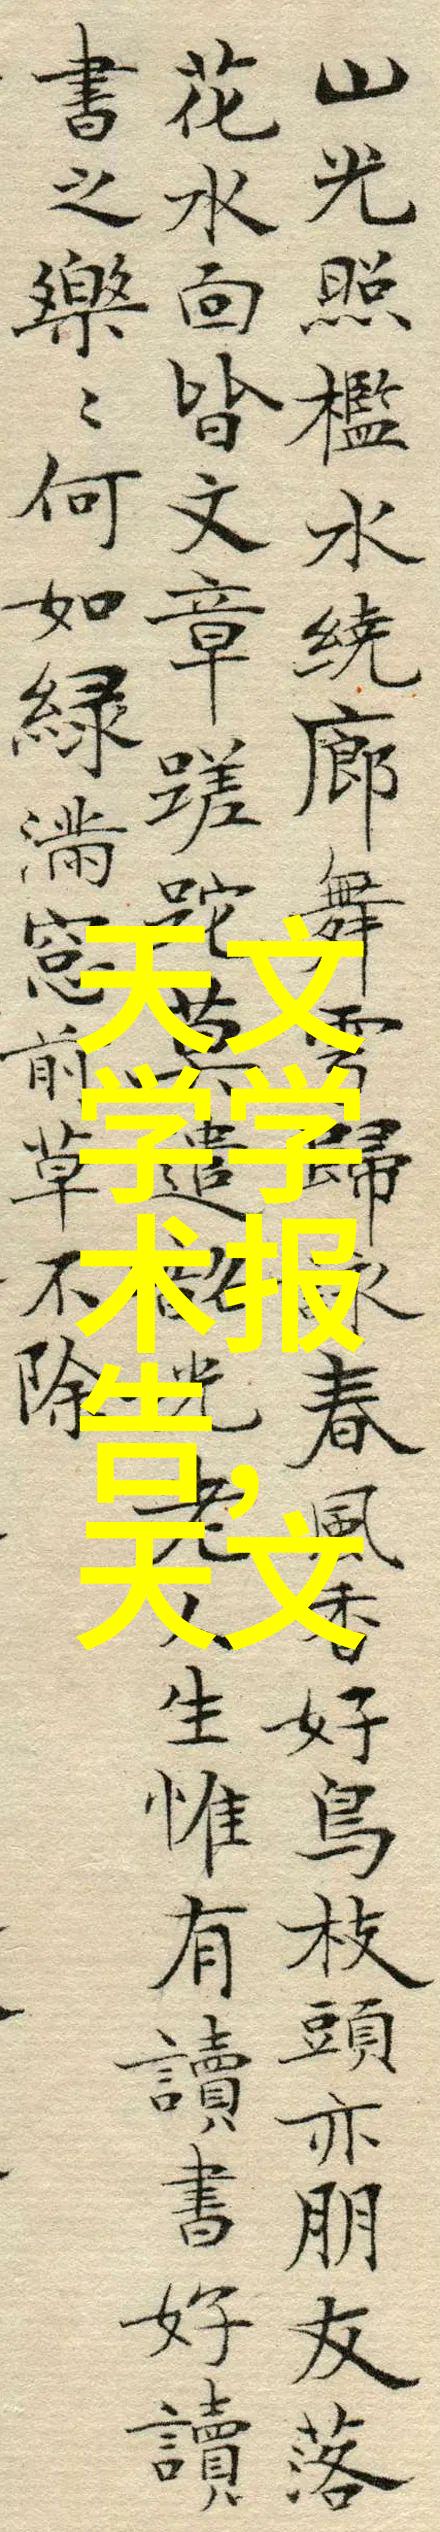 山光照檻水繞廊舞雩歸詠春風香好鳥枝頭亦朋友落
花水面皆文章蹉跎莫遣韶光老人生惟有讀書好讀
書之樂〻何如緑滿窓前草不除
天文
学学
术报
告,
天文